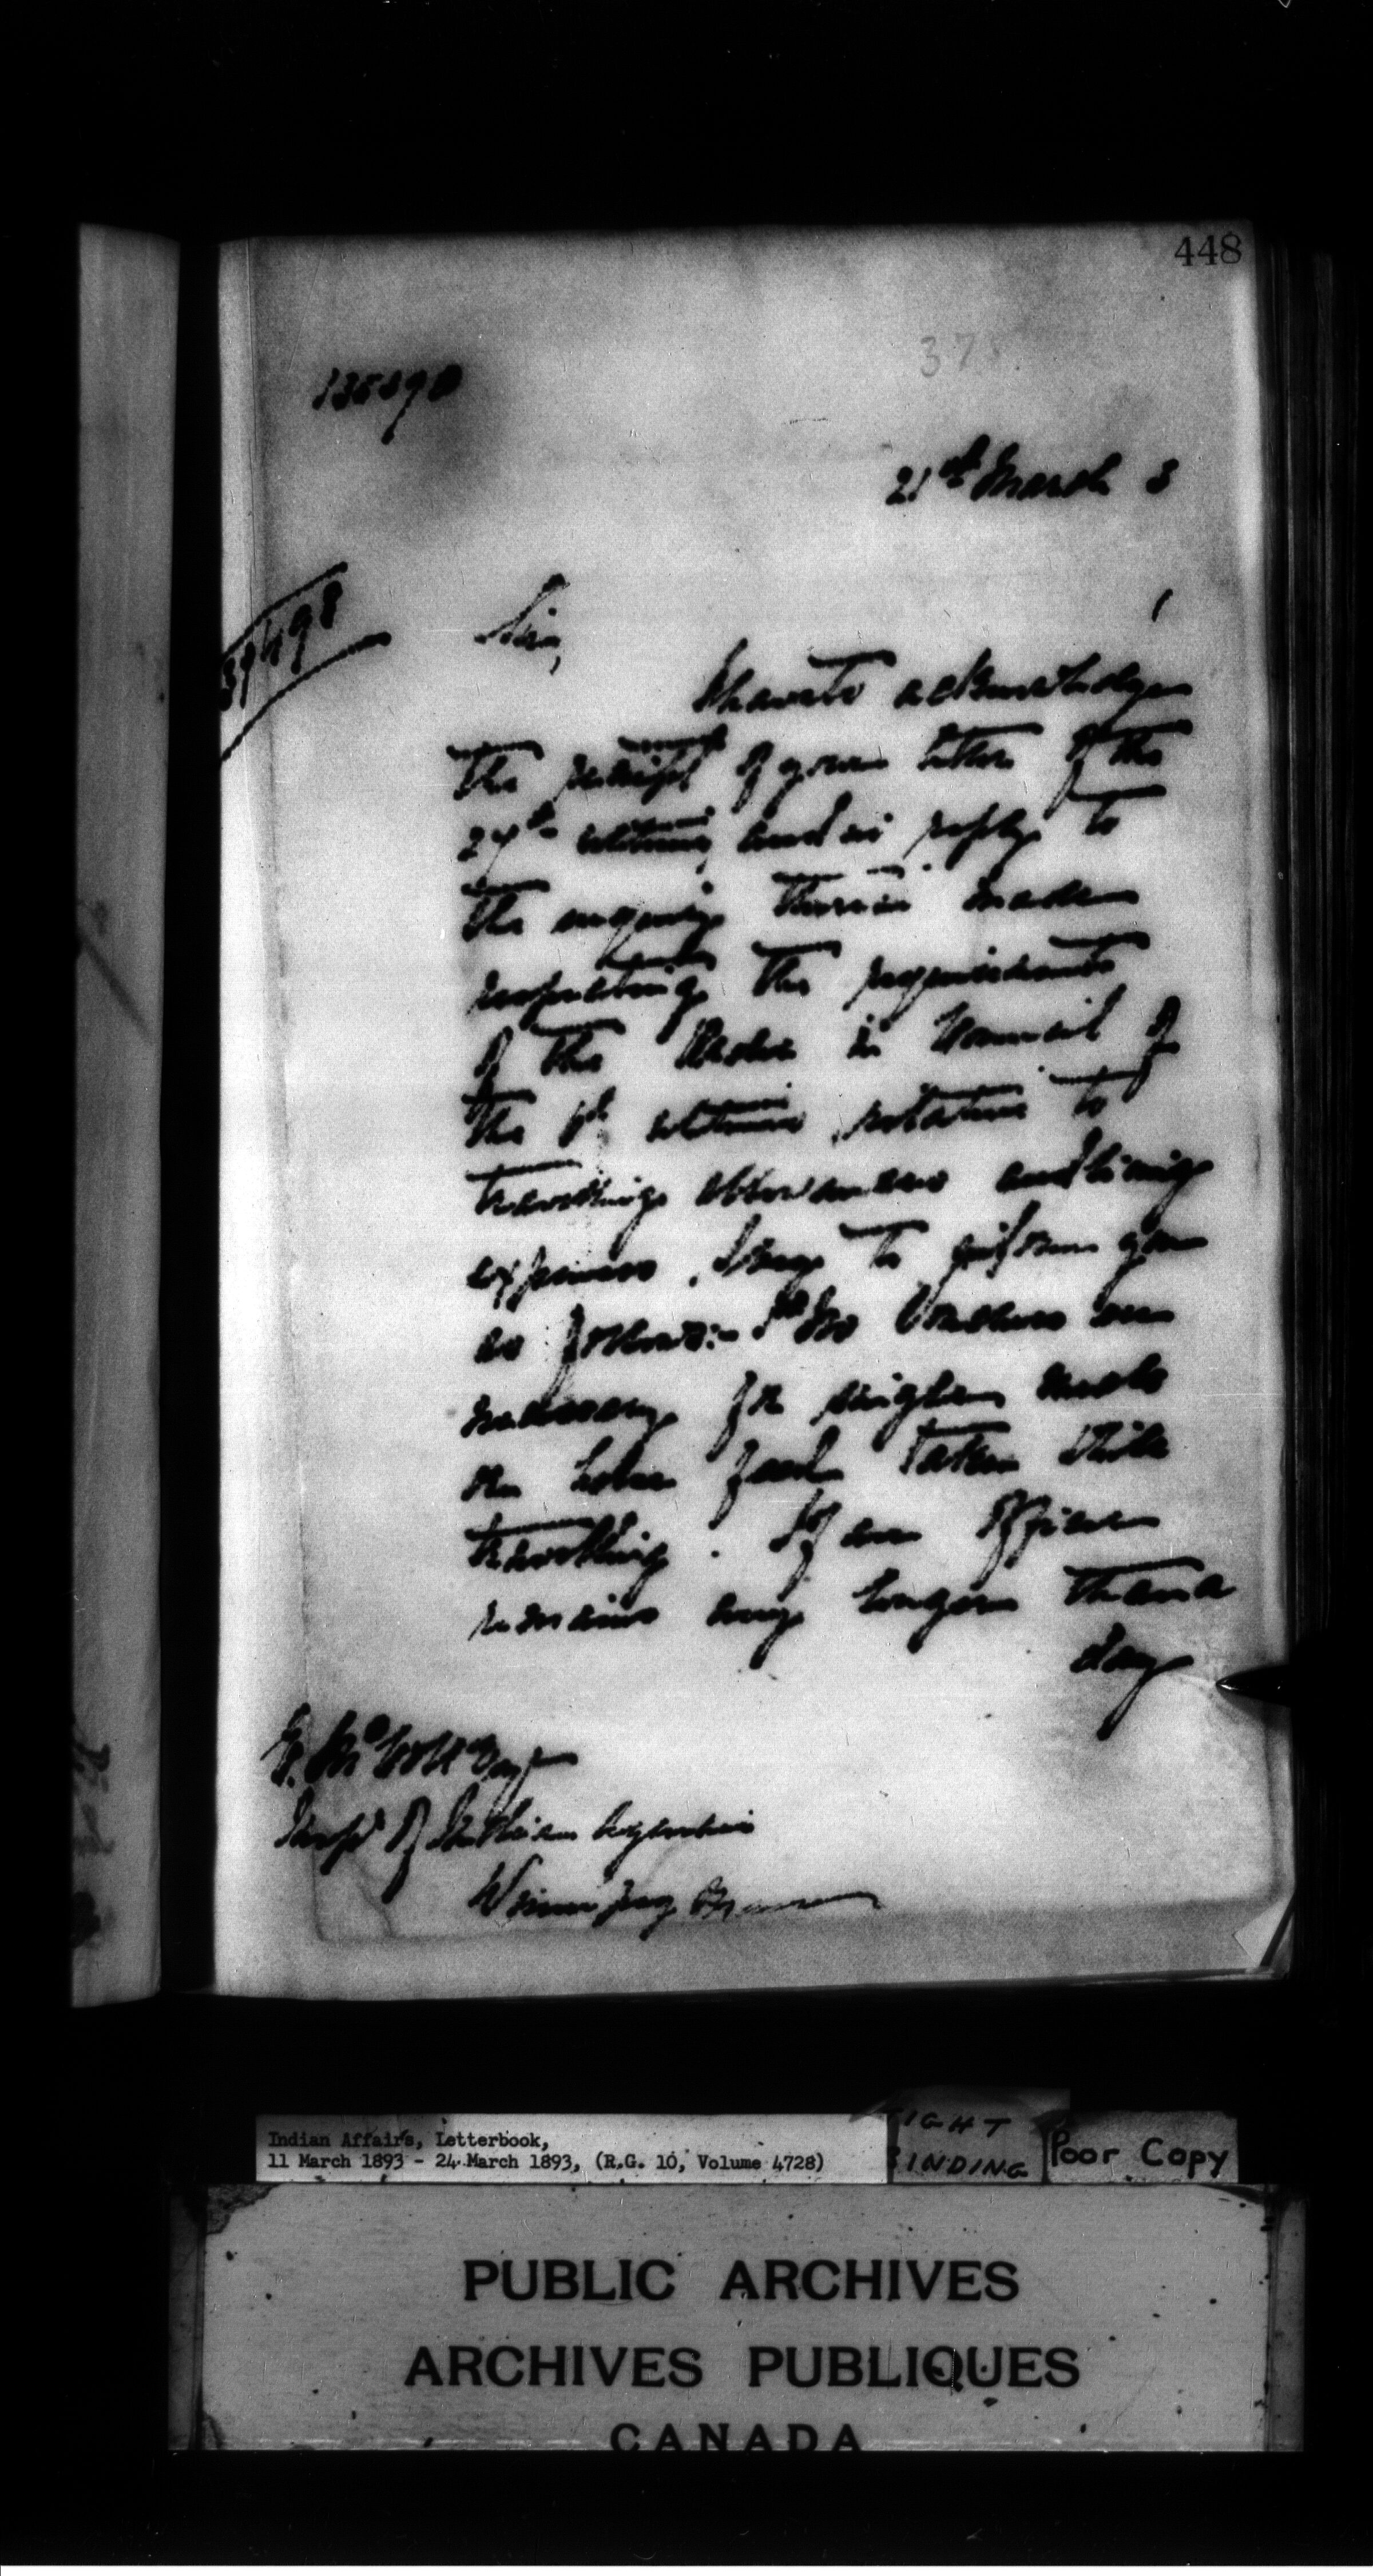 448
37
21st March 3
Sir,
I have to acknowledge
the receipt of your letter of the
27th ultimo, and in reply to
the enquiry therein made
respecting the requirements
of the Order in Council of
the 1st ultimo relative to
travelling allowances and living
expenses, I beg to inform you
as follows:- 1st No vouchers are
necessary for single meals
or horse feed taken while
travelling. If an officer
remains any longer than a
day
E. McColl Esq
Insp of Indian Agencies
Winnipeg Man
Indian Affairs, Letterbook,
11 March 1893 - 24 March 1893, (R.G. 10, Volume 4728)
TIGHT
BINDING
Poor Copy
PUBLIC ARCHIVES
ARCHIVES PUBLIQUES
CANADA